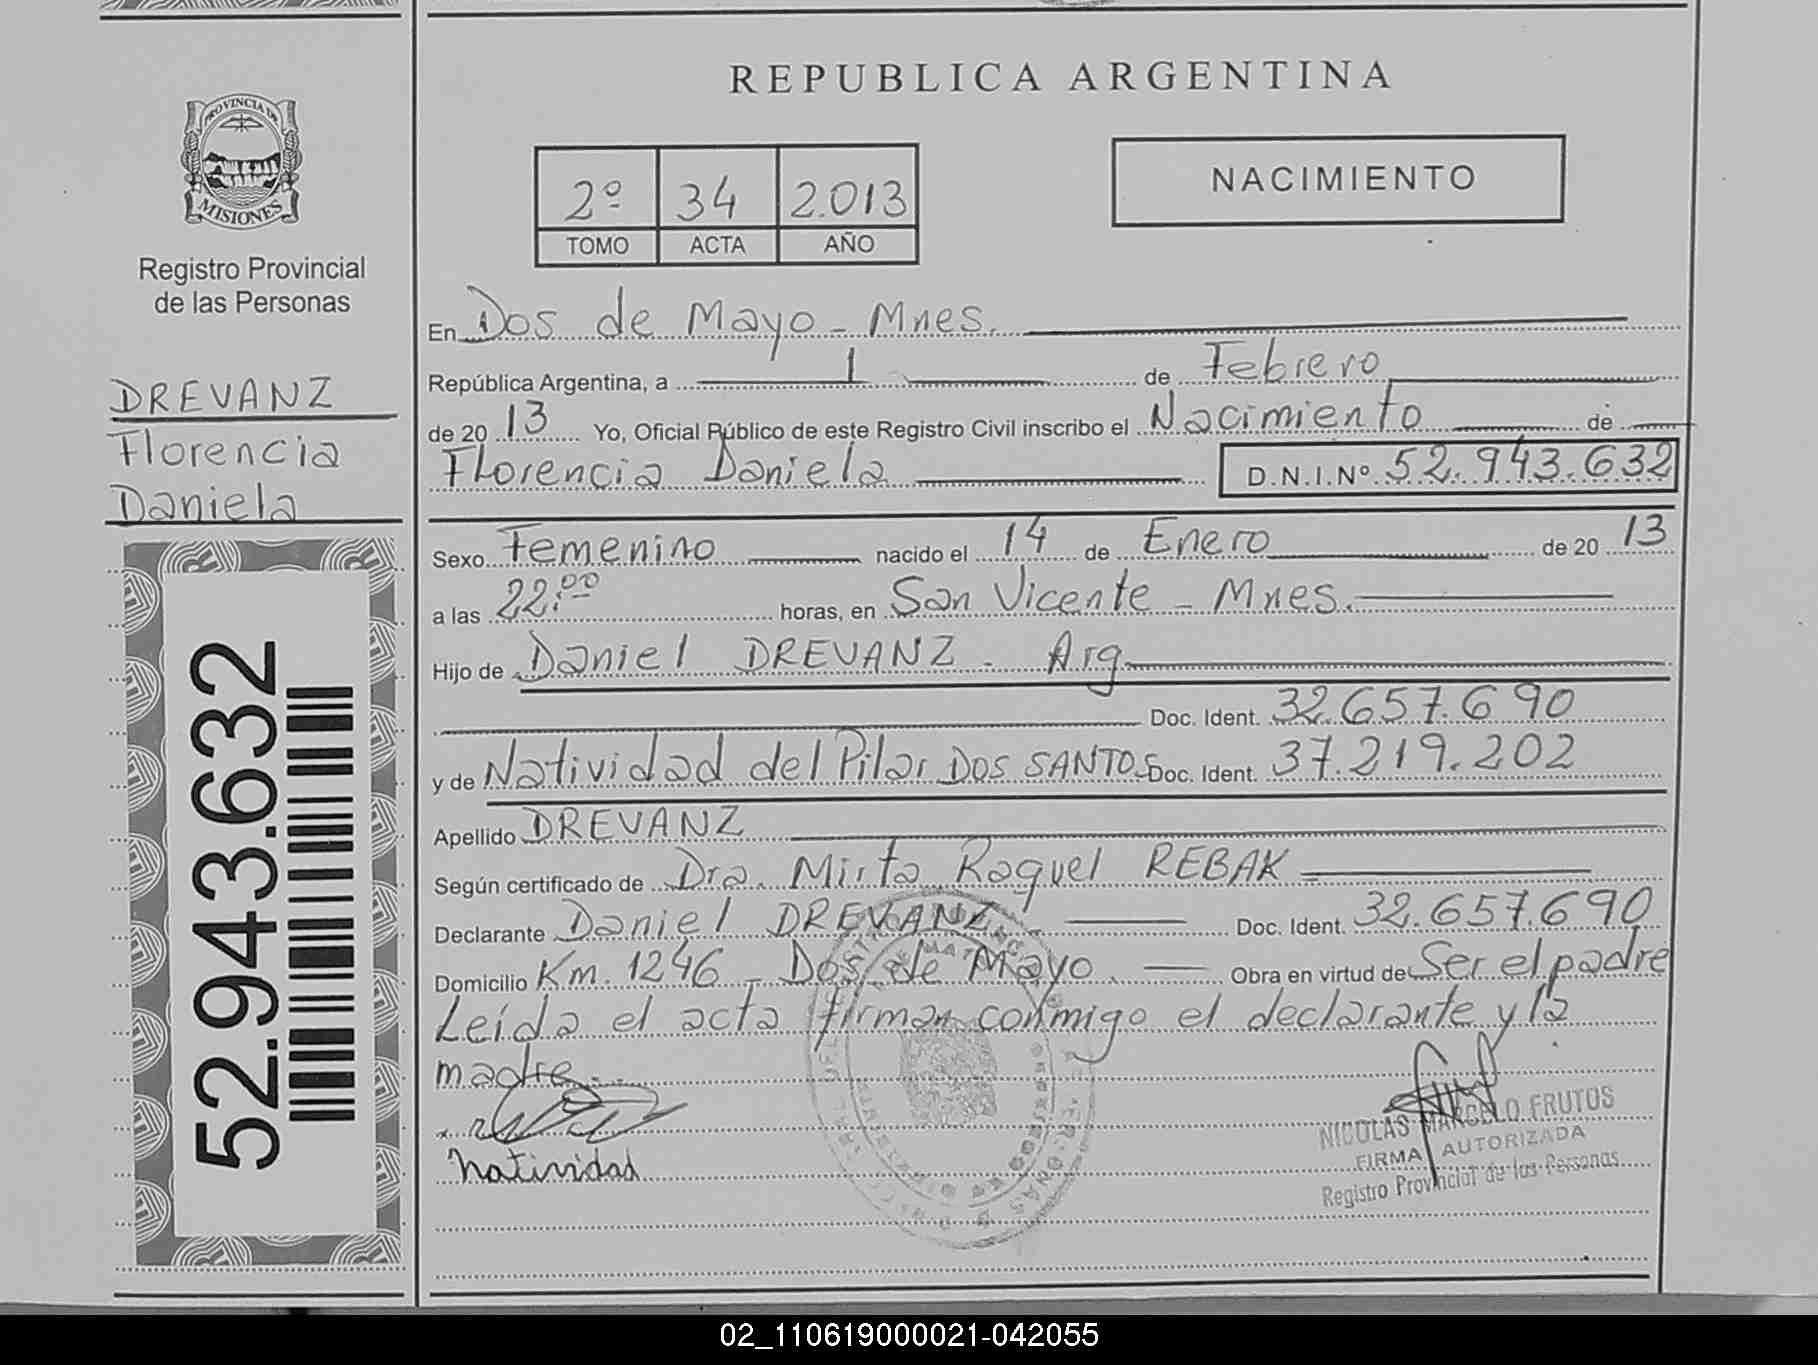 REPUBLICA ARGENTINA
PROVINCIA DE
MISIONES
Registro Provincial
de las Personas
2º 34 2.013
TOMO ACTA AÑO
NACIMIENTO
DREVANZ
Florencia
Daniela
52.943.632
En Dos de Mayo - Mnes.
República Argentina, a 1 de Febrero
de 20 13 Yo, Oficial Público de este Registro Civil inscribo el Nacimiento de
Florencia Daniela D.N.I.Nº 52.943.632
Sexo Femenino nacido el 14 de Enero de 20 13
a las 22:00 horas, en San Vicente - Mnes.
Hijo de Daniel DREVANZ - Arg
Doc. Ident. 32.657.690
y de Natividad del Pilar DOS SANTOS Doc. Ident. 37.219.202
Apellido DREVANZ
Según certificado de Dra. Mirta Raquel REBAK
Declarante Daniel DREVANZ. Doc. Ident. 32.657.690
Domicilio Km. 1246 - Dos de Mayo. Obra en virtud de Ser el padre
Leída el acta firman conmigo el declarante y la
madre.
Natividad
NICOLAS MARCELO FRUTOS
FIRMA AUTORIZADA
Registro Provincial de las Personas
02_110619000021-042055